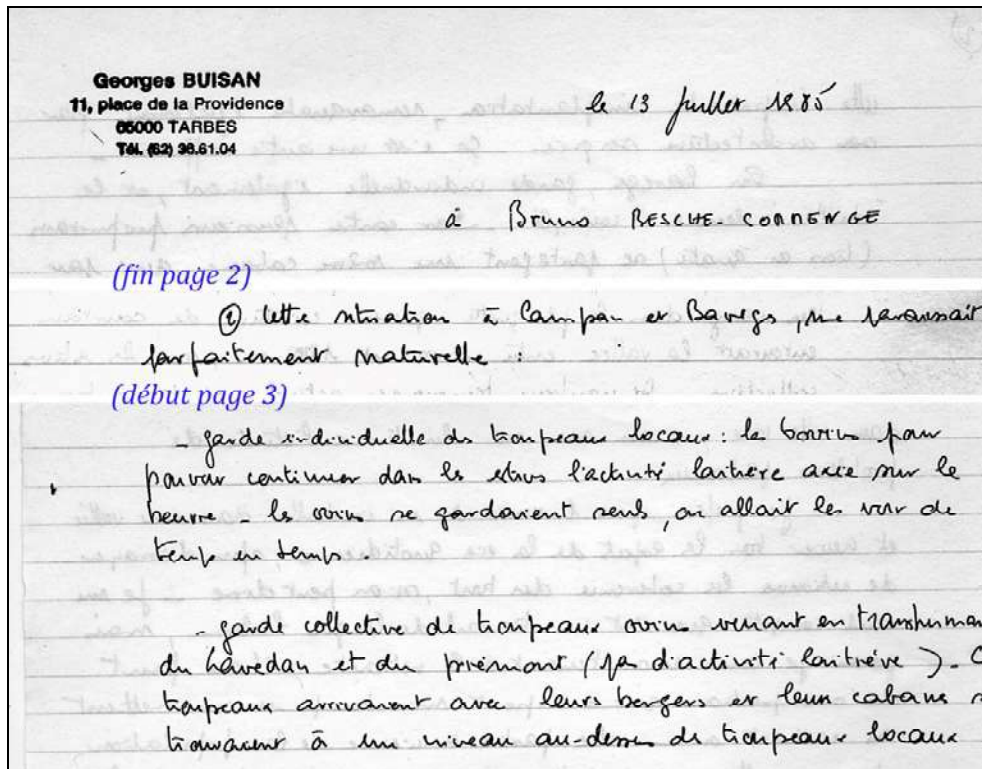 Georges BUISAN
11, place de la Providence
65000 TARBES
Tél. (62) 36.61.04
le 13 juillet 1985
à Bruno BESCHE-COMMENGE
(fin page 2)
① Cette situation à Campan et Barèges, me paraissait
parfaitement naturelle :
(début page 3)
- garde individuelle des troupeaux locaux : les bovins pour
pouvoir continuer dans les estives l'activité laitière axée sur le
beurre - les ovins se gardaient seuls, on allait les voir de
temps en temps.
- garde collective de troupeaux ovins venant en transhuman
du Lavedan et du piémont (pas d'activité laitière). C
troupeaux arrivaient avec leurs bergers et leurs cabanes s
trouvaient à un niveau au-dessus des troupeaux locaux